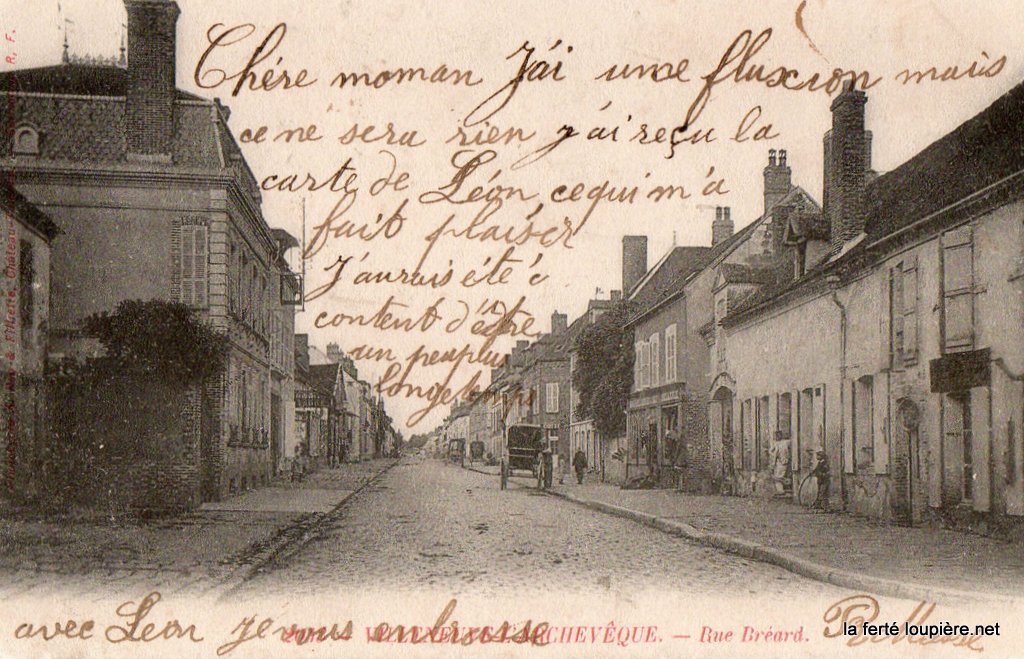 Chére moman J'ai une fluxcion mais
ce ne sera rien j'ai reçu la
carte de Léon, ce qui m'a
fait plaisir
J'aurais été
content d'être
un peu plus
longtemps
avec Leon Je vous enbrasse
VILLENEUVE-L'ARCHEVÊQUE. — Rue Bréard.
la ferté loupière.net